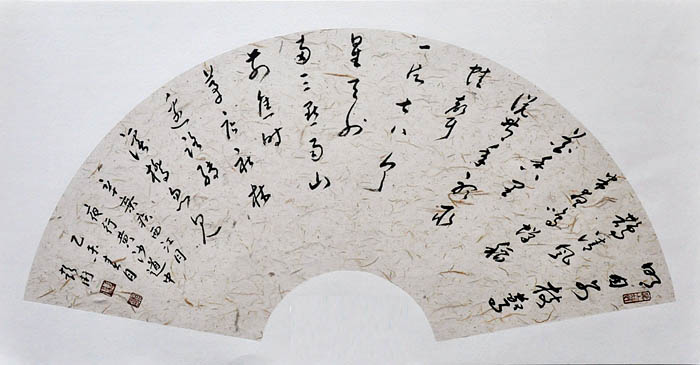 明月别枝惊
鹊清风
半夜鸣蝉稻
花香里
说丰年听取
蛙声
一片七八个
星天外
两三点雨山
前旧时
茅店社林
边路转
溪桥忽见
辛弃疾西江月
夜行黄沙道中
乙未春月